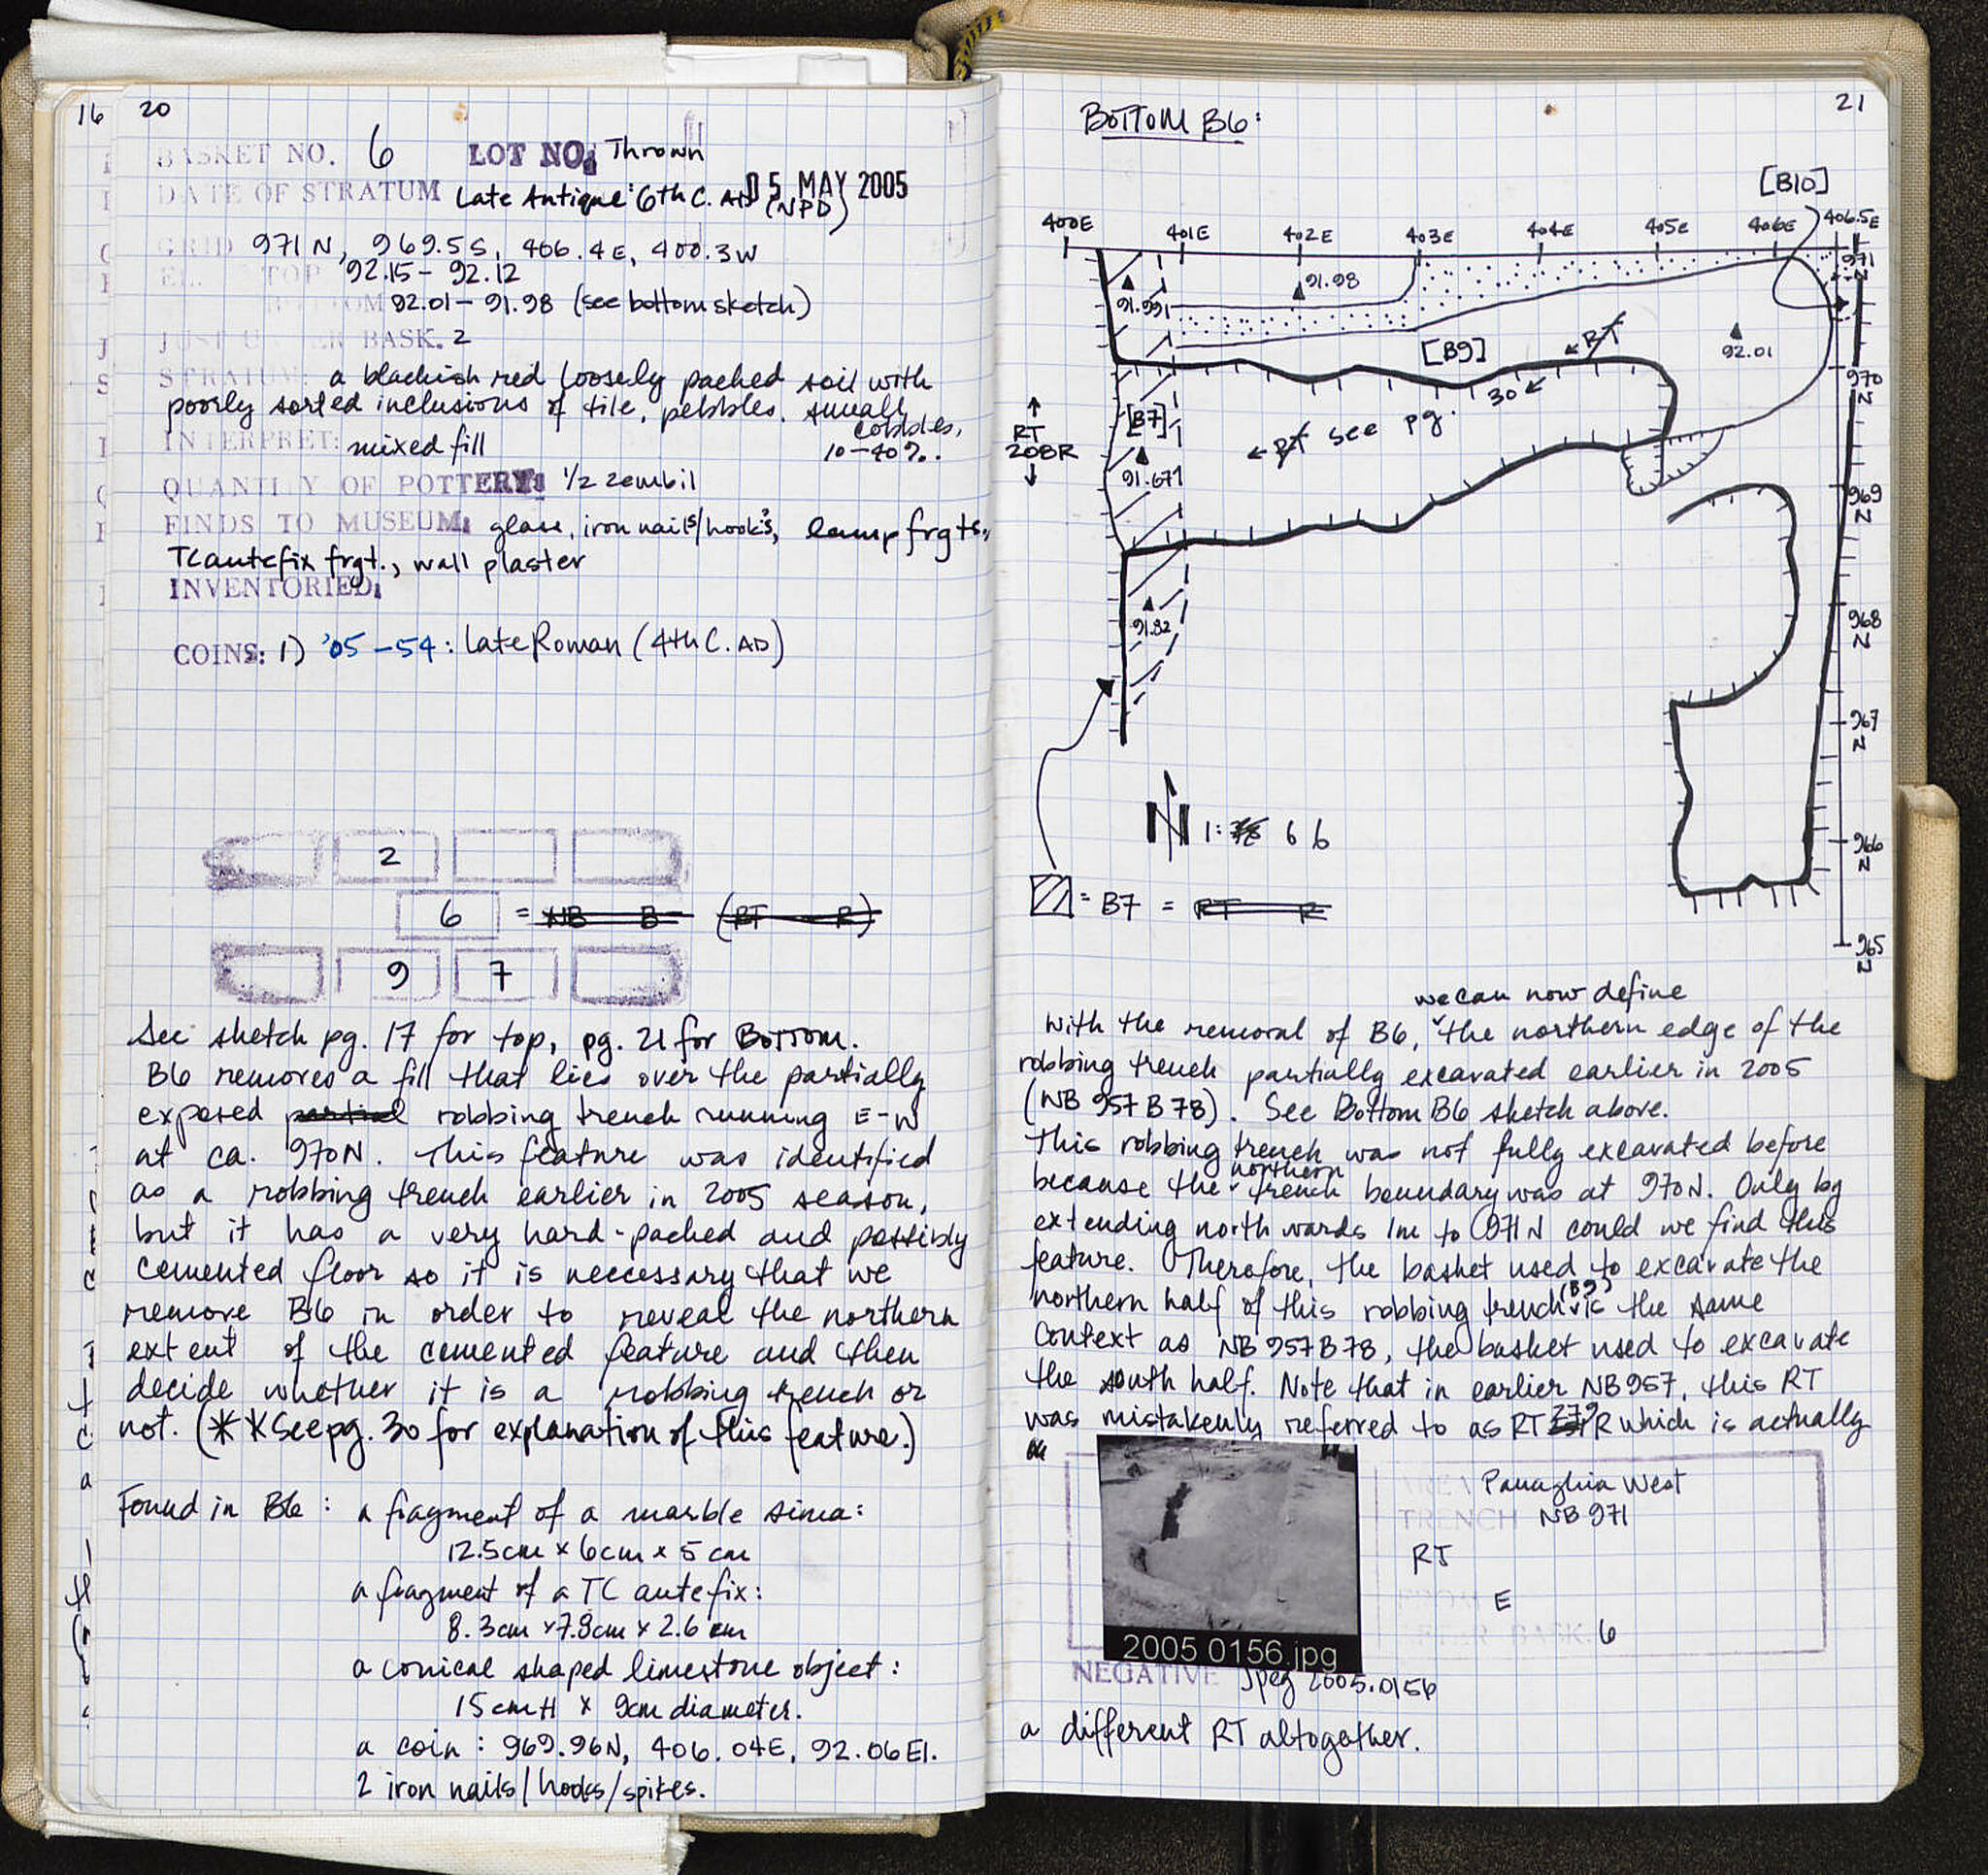 16
20
BASKET NO. 6 LOT NO. Thrown
DATE OF STRATUM Late Antique: 6th C. AD (NPD) 05 MAY 2005
GRID 971 N, 969.5 S, 406.4 E, 400.3 W
EL. TOP 92.15 - 92.12
BOTTOM 92.01 - 91.98 (see bottom sketch)
JUST UNDER BASK. 2
STRATUM: a blackish red loosely packed soil with
poorly sorted inclusions of tile, pebbles, small
cobbles,
INTERPRET: mixed fill 10-40%.
QUANTITY OF POTTERY: 1/2 zembil
FINDS TO MUSEUM: glass, iron nails/hooks?, lamp frgts.,
TC antefix frgt., wall plaster
INVENTORIED:
COINS: 1) '05-54: Late Roman (4th C. AD)
2
6 = NB B (RT R)
9 7
See sketch pg. 17 for top, pg. 21 for Bottom.
B6 removes a fill that lies over the partially
exposed partial robbing trench running E-W
at ca. 970N. This feature was identified
as a robbing trench earlier in 2005 season,
but it has a very hard-packed and possibly
cemented floor so it is neccessary that we
remove B6 in order to reveal the northern
extent of the cemented feature and then
decide whether it is a robbing trench or
not. (**See pg. 30 for explanation of this feature.)
Found in B6: a fragment of a marble sima:
12.5cm x 6cm x 5 cm
a fragment of a TC antefix:
8.3cm x 7.9cm x 2.6 cm
a conical shaped limestone object:
15cm H x 9cm diameter.
a coin: 969.96N, 406.04E, 92.06 El.
2 iron nails/hooks/spikes.
21
BOTTOM B6:
[B10]
400E 401E 402E 403E 404E 405E 406E 406.5E
971 N
91.991
91.98
92.01
[B9]
RT
970 N
30
RT see pg.
[B7]
RT 208R
91.671
969 N
91.82
968 N
967 N
N 1: 66
966 N
= B7 = RT R
965 N
we can now define
With the removal of B6, the northern edge of the
robbing trench partially excavated earlier in 2005
(NB 957 B 78). See Bottom B6 sketch above.
This robbing trench was not fully excavated before
northern
because the trench boundary was at 970N. Only by
extending northwards 1m to 971N could we find this
feature. Therefore, the basket used to excavate the
northern half of this robbing trench (B9) is the same
context as NB 957 B 78, the basket used to excavate
the south half. Note that in earlier NB 957, this RT
was mistakenly referred to as RT 279 R which is actually
Panaghia West
TRENCH NB 971
RT
FROM E
AFTER BASK. 6
2005 0156.jpg
NEGATIVE Jpeg 2005.0156
a different RT altogether.